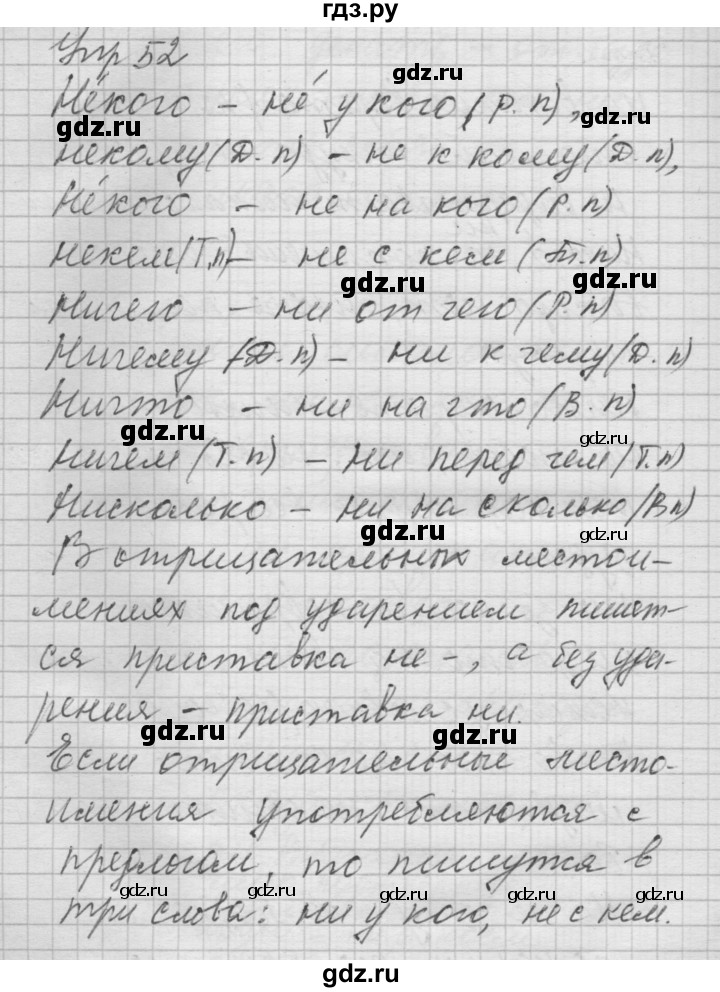 гдз.ру
Упр 52
gdz.ru
Не́кого – не́ у кого (Р. п),
gdz.ru
gdz.ru
некому (Д. п) – не к кому (Д. п),
gdz.ru
Не́кого – не на кого (Р. п)
некем (Т. п) – не с кем (Т. п)
gdz.ru
gdz.ru
Ничего – ни от чего (Р. п)
Ничему (Д. п) – ни к чему (Д. п)
gdz.ru
Ничто – ни на что (В. п)
gdz.ru
gdz.ru
Ничем (Т. п) – ни перед чем (Т. п)
Нисколько – ни на сколько (В п)
gdz.ru
В отрицательных местои-
мениях под ударением пишет-
ся приставка не-, а без уда-
рения – приставка ни.
gdz.ru
gdz.ru
Если отрицательные место-
имения употребляются с
предлогам, то пишутся в
gdz.ru
gdz.ru
gdz.ru
gdz.ru
gdz.ru
три слова: ни у кого, не с кем.
gdz.ru